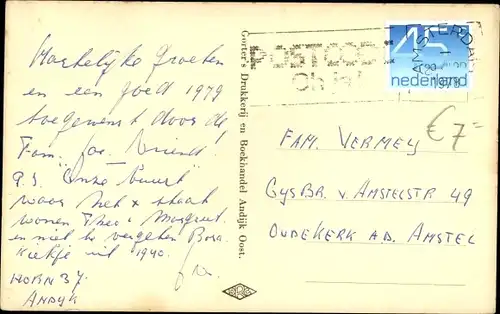 Hartelijke Groeten
en een goed 1979
toegewenst door de
Fam. Jac. Vriend.
P.S. Onze buurt
waar het x staat
wonen Thee Margreet
en niet te vergeten Bora.
Kiekje uit 1940.
Jac.
HORN 37.
ANDYK
Gorter's Drukkerij en Boekhandel Andijk Oost.
POSTCODE
AMSTERDAM
1978
nederland
€ 7=
FAM. VERMEY
GYSBR. V. AMSTELSTR 49
OUDEKERK A.D. AMSTEL